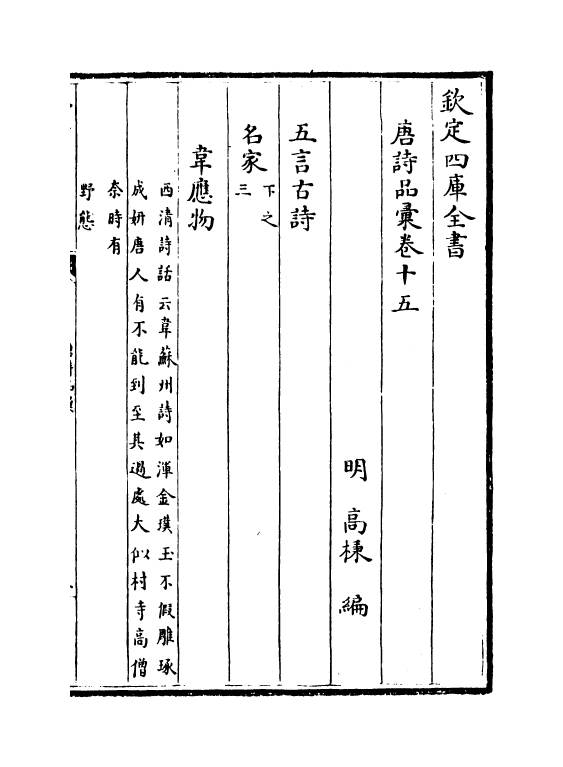 欽定四庫全書
唐詩品彙卷十五
明 高棅 編
五言古詩
名家下之三
韋應物
西清詩話云韋蘇州詩如渾金璞玉不假雕琢
成妍唐人有不能到至其過處大似村寺高僧
奈時有
野態